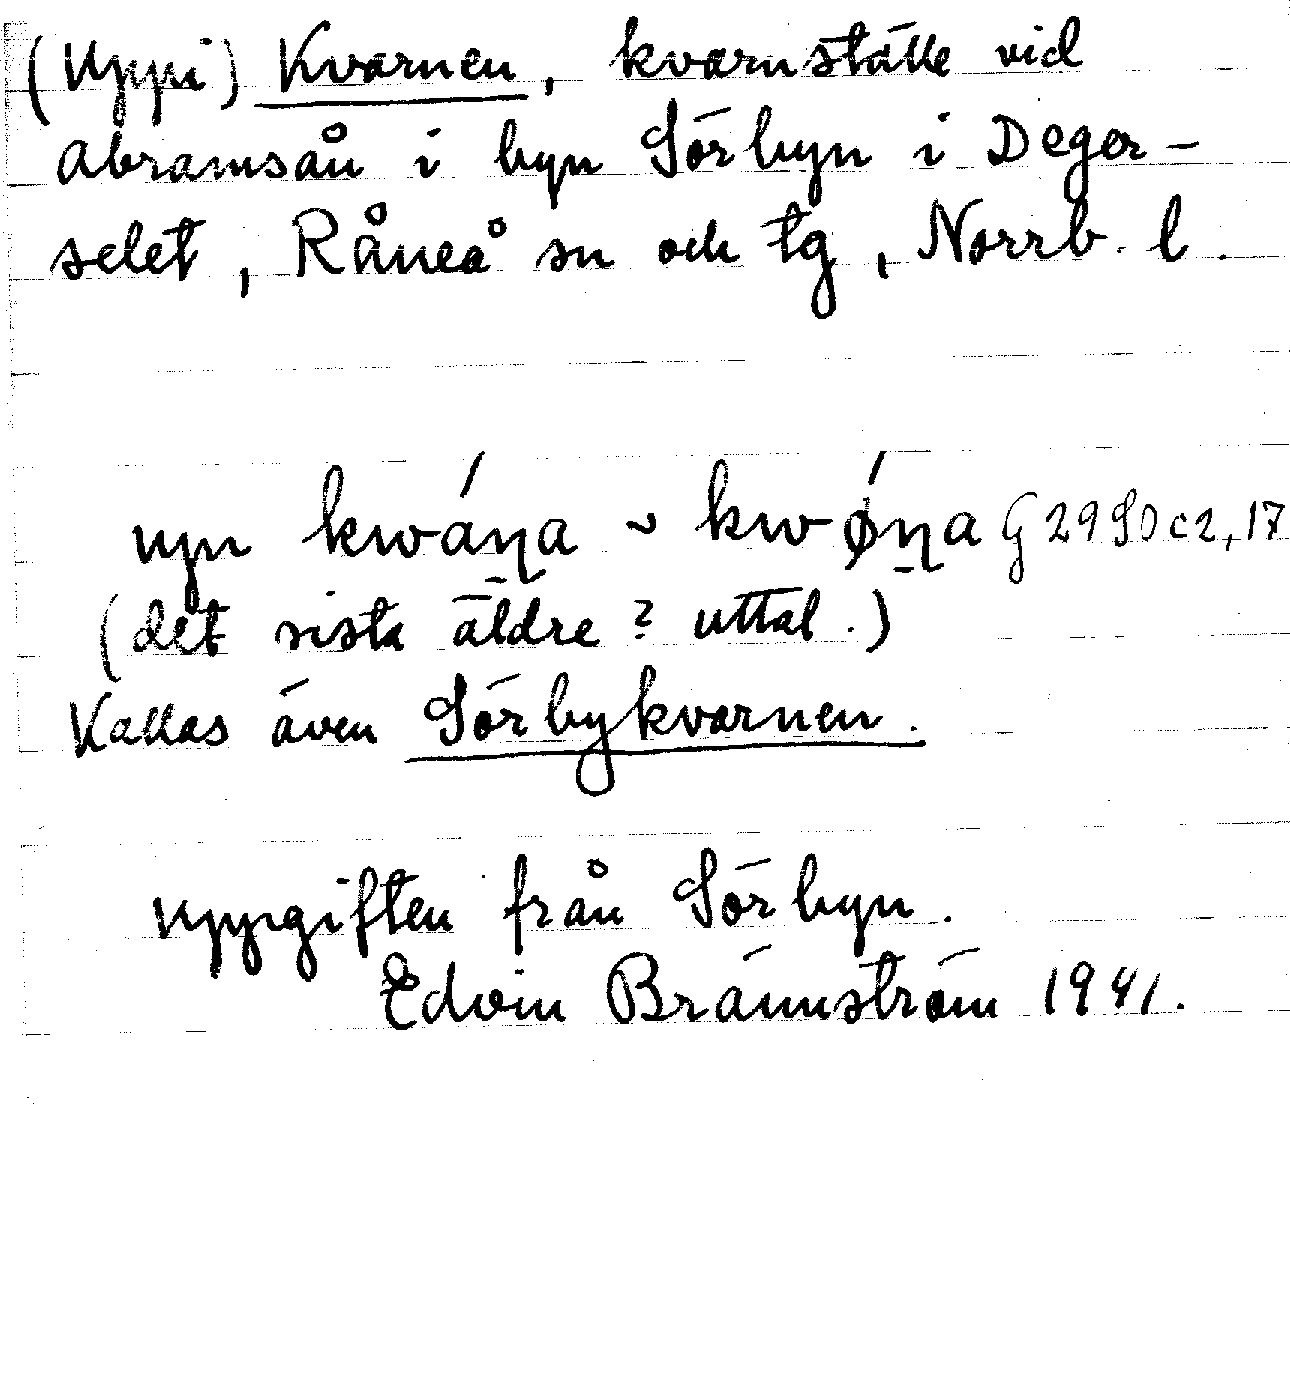 (Uppi) Kvarnen, kvarnställe vid
Abramsån i byn Sörbyn i Deger-
selet, Råneå sn och tg, Norrb. l.
upn kwáṇa ~ kwǿṇa G 2950 c2, 17
(det sista äldre? uttal.)
Kallas även Sörbykvarnen.
Uppgiften från Sörbyn.
Edvin Brännström 1941.